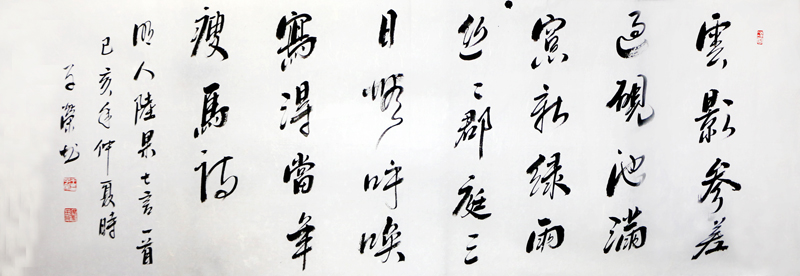 雲影參差
過硯池滿
窓新綠雨
絲〻郡庭三
日慵呼喚
寫得當年
瘦馬詩
明人陸杲七言一首
己亥年仲夏時
榮书